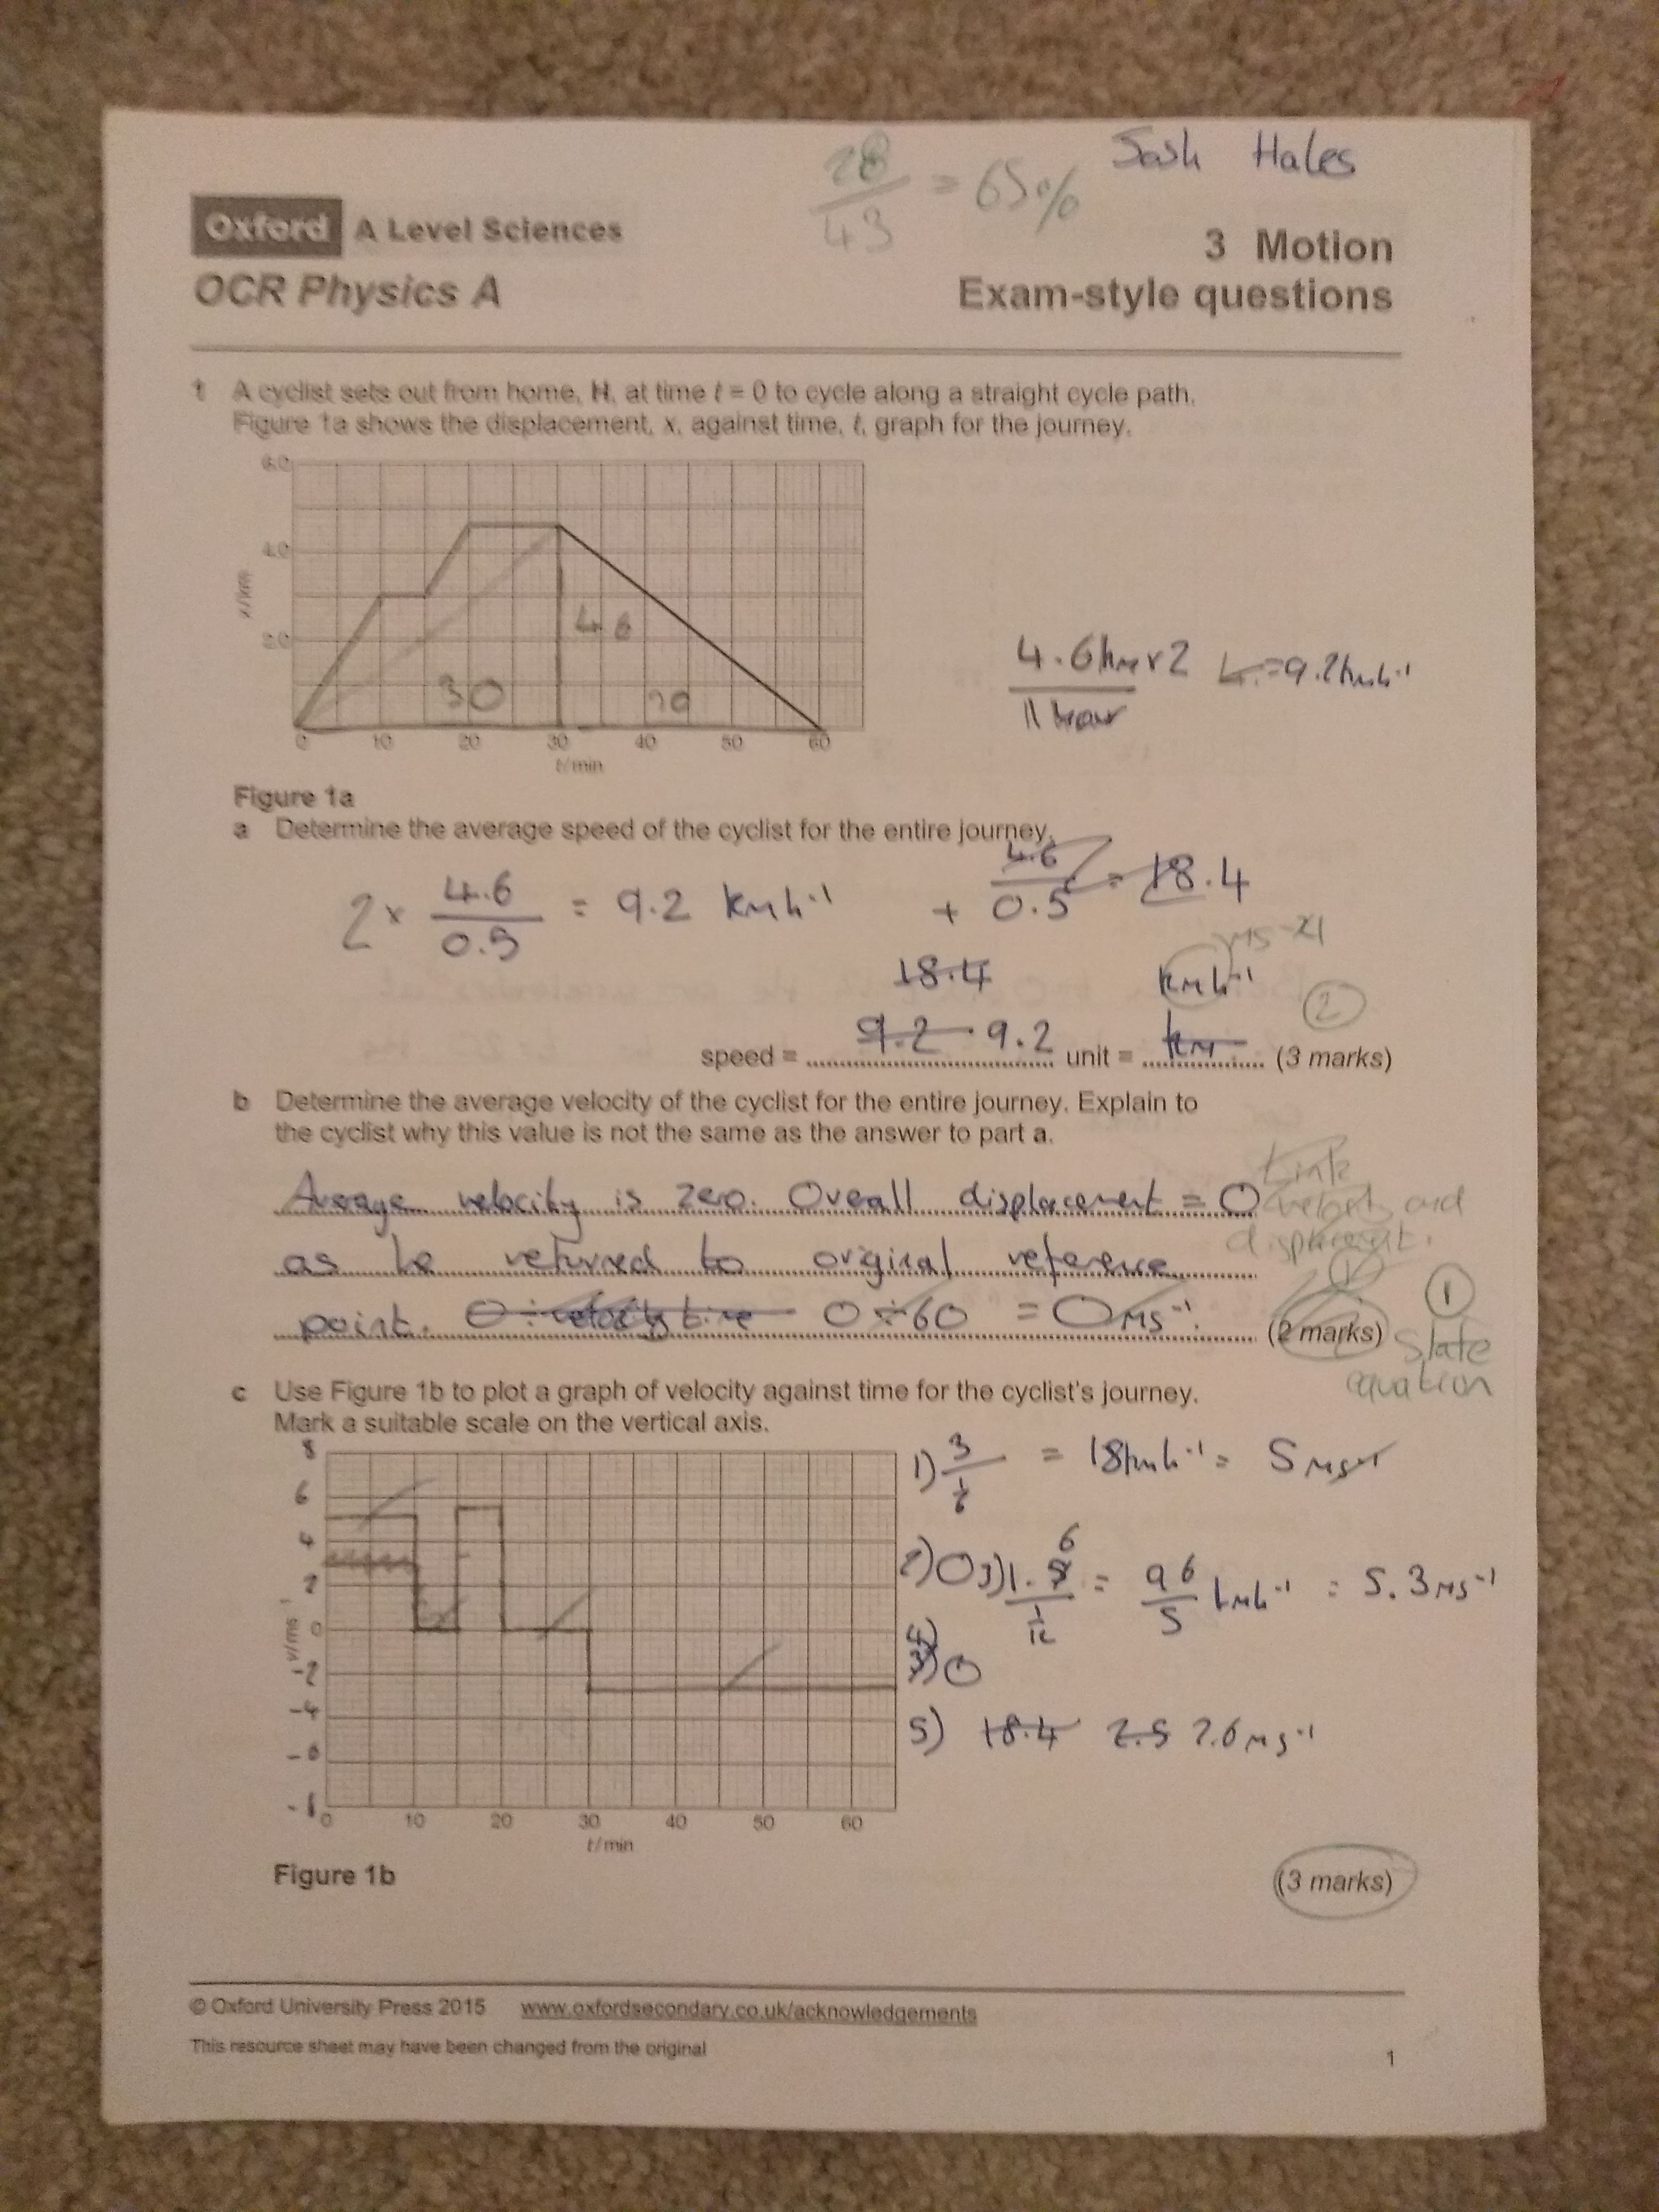 28/43 = 65%
Hales
Oxford A Level Sciences
OCR Physics A
3 Motion
Exam-style questions
1 A cyclist sets out from home, H, at time t = 0 to cycle along a straight cycle path.
Figure 1a shows the displacement, x, against time, t, graph for the journey.
6.0
4.0
x/km
2.0
4.6
30
0 10 20 30 40 50 60
t/min
= 9.2kmh⁻¹
Figure 1a
a Determine the average speed of the cyclist for the entire journey.
2 × 4.6/0.5 = 9.2 kmh⁻¹ + 4.6/0.5 = 18.4
18.4 kmh⁻¹
2
speed = 9.2 9.2 unit = km (3 marks)
b Determine the average velocity of the cyclist for the entire journey. Explain to
the cyclist why this value is not the same as the answer to part a.
Link
velocity and
displacement.
Average velocity is zero. Overall displacement = 0
as he returned to original reference
point. 0 ÷ 60 = 0ms⁻¹. (2 marks)
1
State
equation
c Use Figure 1b to plot a graph of velocity against time for the cyclist's journey.
Mark a suitable scale on the vertical axis.
8
6
4
2
v/ms⁻¹
0
-2
-4
-6
0 10 20 30 40 50 60
t/min
1) 3/⅙ = 18kmh⁻¹ = 5ms⁻¹
2) 0 3) 1.6/(1/12) = 96/5 kmh⁻¹ = 5.3ms⁻¹
4) 0
5) 18.4 2.5 2.6ms⁻¹
Figure 1b
(3 marks)
© Oxford University Press 2015 www.oxfordsecondary.co.uk/acknowledgements
This resource sheet may have been changed from the original
1